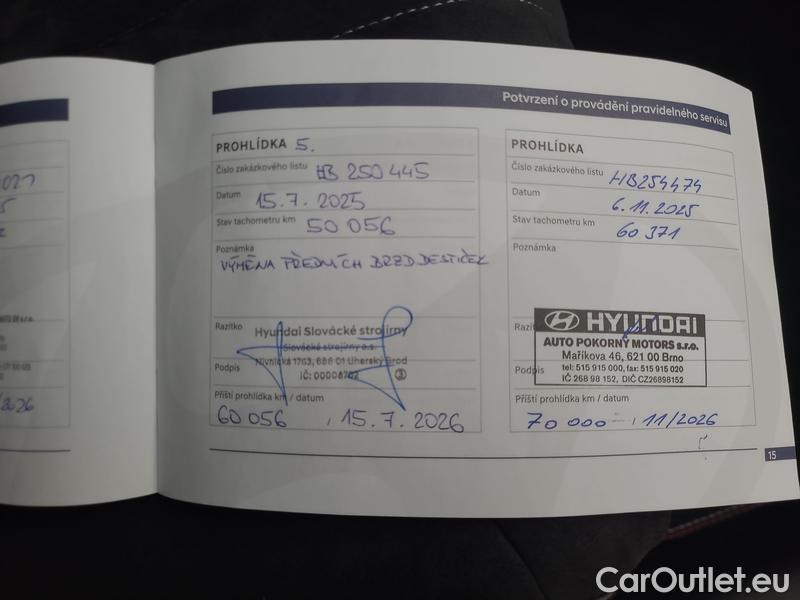 Potvrzení o provádění pravidelného servisu
PROHLÍDKA 5.
Číslo zakázkového listu HB 250445
Datum 15.7.2025
Stav tachometru km 50 056
Poznámka
VÝMĚNA PŘEDNÍCH BRZD DESTIČEK
Razítko
Hyundai Slovácké strojírny
Slovácké strojírny a.s.
Nivnická 1763, 688 01 Uherský Brod
Podpis
IČ: 00008702
Příští prohlídka km / datum
60 056 , 15.7.2026
PROHLÍDKA
Číslo zakázkového listu HB254474
Datum 6.11.2025
Stav tachometru km 60 371
Poznámka
HYUNDAI
AUTO POKORNÝ MOTORS s.r.o.
Maříkova 46, 621 00 Brno
Podpis
tel: 515 915 000, fax: 515 915 020
IČ 268 98 152, DIČ CZ26898152
Příští prohlídka km / datum
70 000 , 11/2026
15
CarOutlet.eu